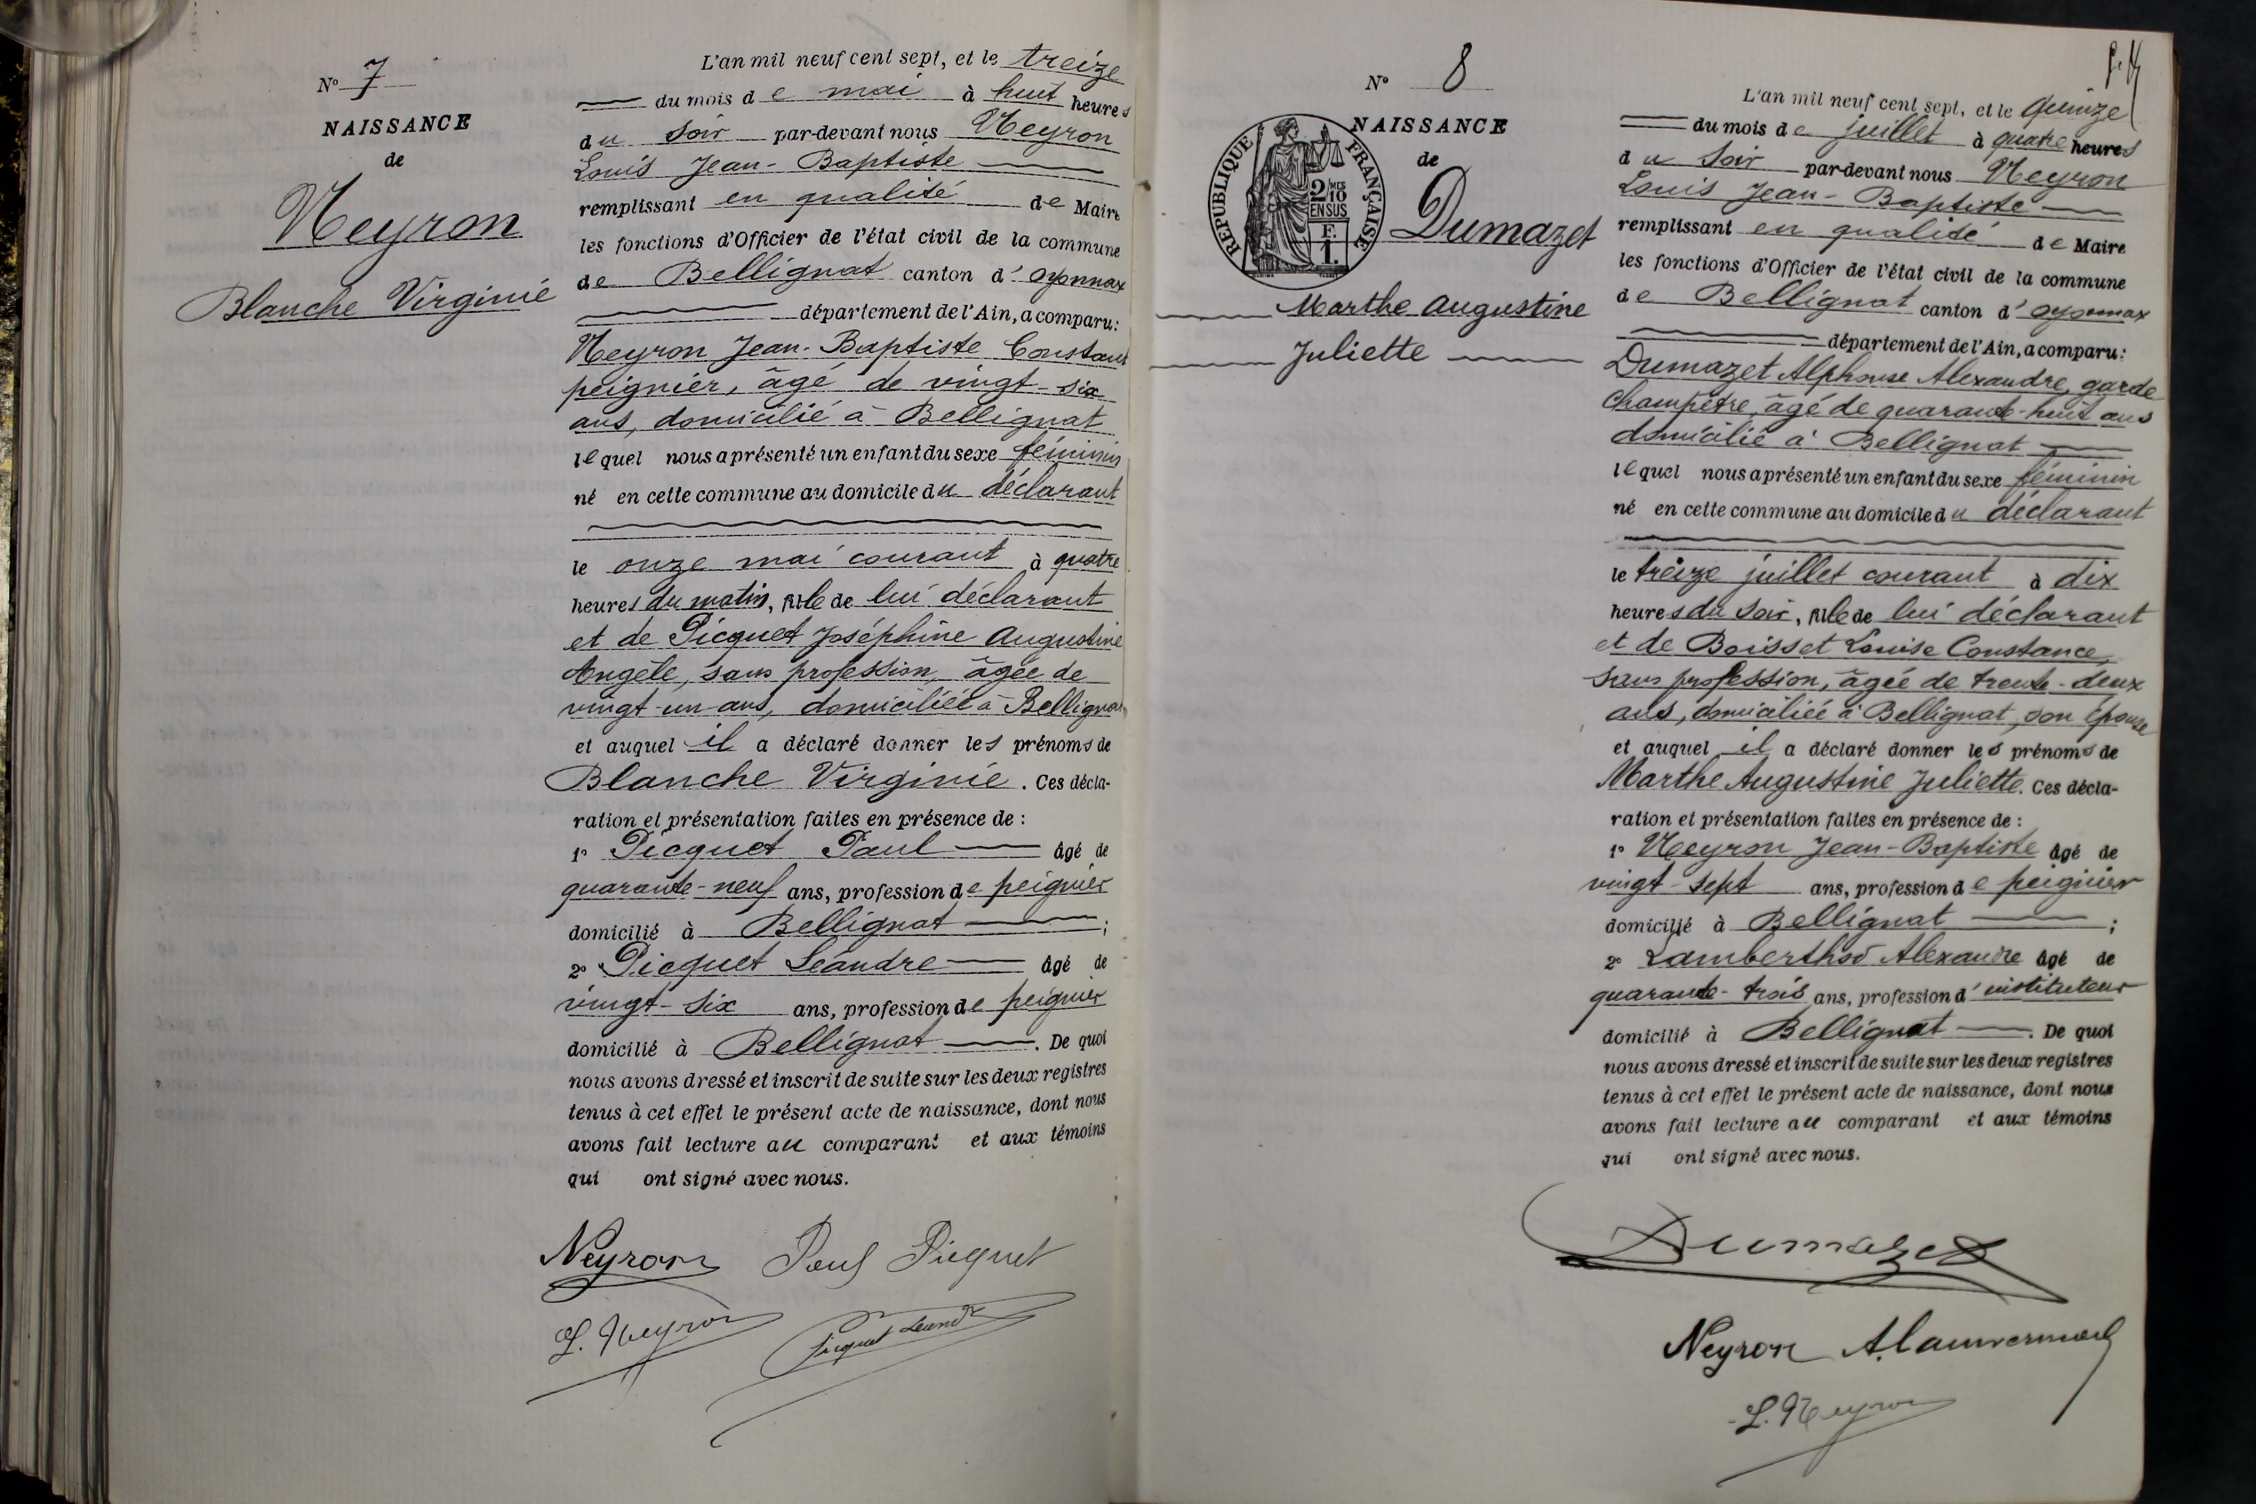 N° 7
NAISSANCE
de
Neyron
Blanche Virginie
L'an mil neuf cent sept, et le treize
du mois de mai à huit heures
du soir par-devant nous Neyron
Louis Jean-Baptiste
remplissant en qualité de Maire
les fonctions d'Officier de l'état civil de la commune
de Bellignat canton d'oyonnax
département de l'Ain, a comparu:
Neyron Jean-Baptiste Constant
peignier, âgé de vingt-six
ans, domicilié à Bellignat
lequel nous a présenté un enfant du sexe féminin
né en cette commune au domicile du déclarant
le onze mai courant à quatre
heures du matin, fille de lui déclarant
et de Picquet Joséphine Augustine
Angèle, sans profession, âgée de
vingt-un ans, domiciliée à Bellignat
et auquel il a déclaré donner les prénoms de
Blanche Virginie. Ces décla-
ration et présentation faites en présence de :
1° Picquet Paul âgé de
quarante-neuf ans, profession de peignier
domicilié à Bellignat ;
2° Picquet Léandre âgé de
vingt-six ans, profession de peignier
domicilié à Bellignat. De quoi
nous avons dressé et inscrit de suite sur les deux registres
tenus à cet effet le présent acte de naissance, dont nous
avons fait lecture au comparant et aux témoins
qui ont signé avec nous.
Neyron Paul Picquet
L. Neyron Picquet Leandre
N° 8
NAISSANCE
de
RÉPUBLIQUE FRANÇAISE
2/10 MES
EN SUS
F.
1.
Dumazet
Marthe Augustine
Juliette
L'an mil neuf cent sept, et le quinze
du mois de juillet à quatre heures
du soir par-devant nous Neyron
Louis Jean-Baptiste
remplissant en qualité de Maire
les fonctions d'Officier de l'état civil de la commune
de Bellignat canton d'oyonnax
département de l'Ain, a comparu:
Dumazet Alphonse Alexandre, garde
champêtre, âgé de quarante-huit ans
domicilié à Bellignat
lequel nous a présenté un enfant du sexe féminin
né en cette commune au domicile du déclarant
le treize juillet courant à dix
heures du soir, fille de lui déclarant
et de Boisset Louise Constance,
sans profession, âgée de trente-deux
ans, domiciliée à Bellignat, son épouse
et auquel il a déclaré donner les prénoms de
Marthe Augustine Juliette. Ces décla-
ration et présentation faites en présence de :
1° Neyron Jean-Baptiste âgé de
vingt-sept ans, profession de peignier
domicilié à Bellignat ;
2° Alexandre âgé de
quarante-trois ans, profession d'instituteur
domicilié à Bellignat. De quoi
nous avons dressé et inscrit de suite sur les deux registres
tenus à cet effet le présent acte de naissance, dont nous
avons fait lecture au comparant et aux témoins
qui ont signé avec nous.
Dumazet
Neyron
L. Neyron